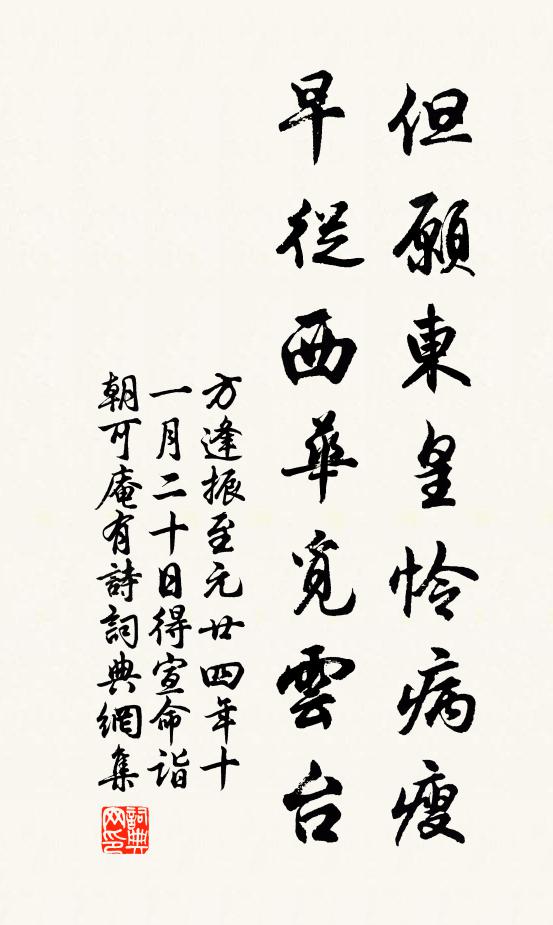 但願東皇怜病瘦
早從西華覓雲台
方逢振至元廿四年十
一月二十日得宣命詣
朝可庵有詩詞典網集
詞典
网印